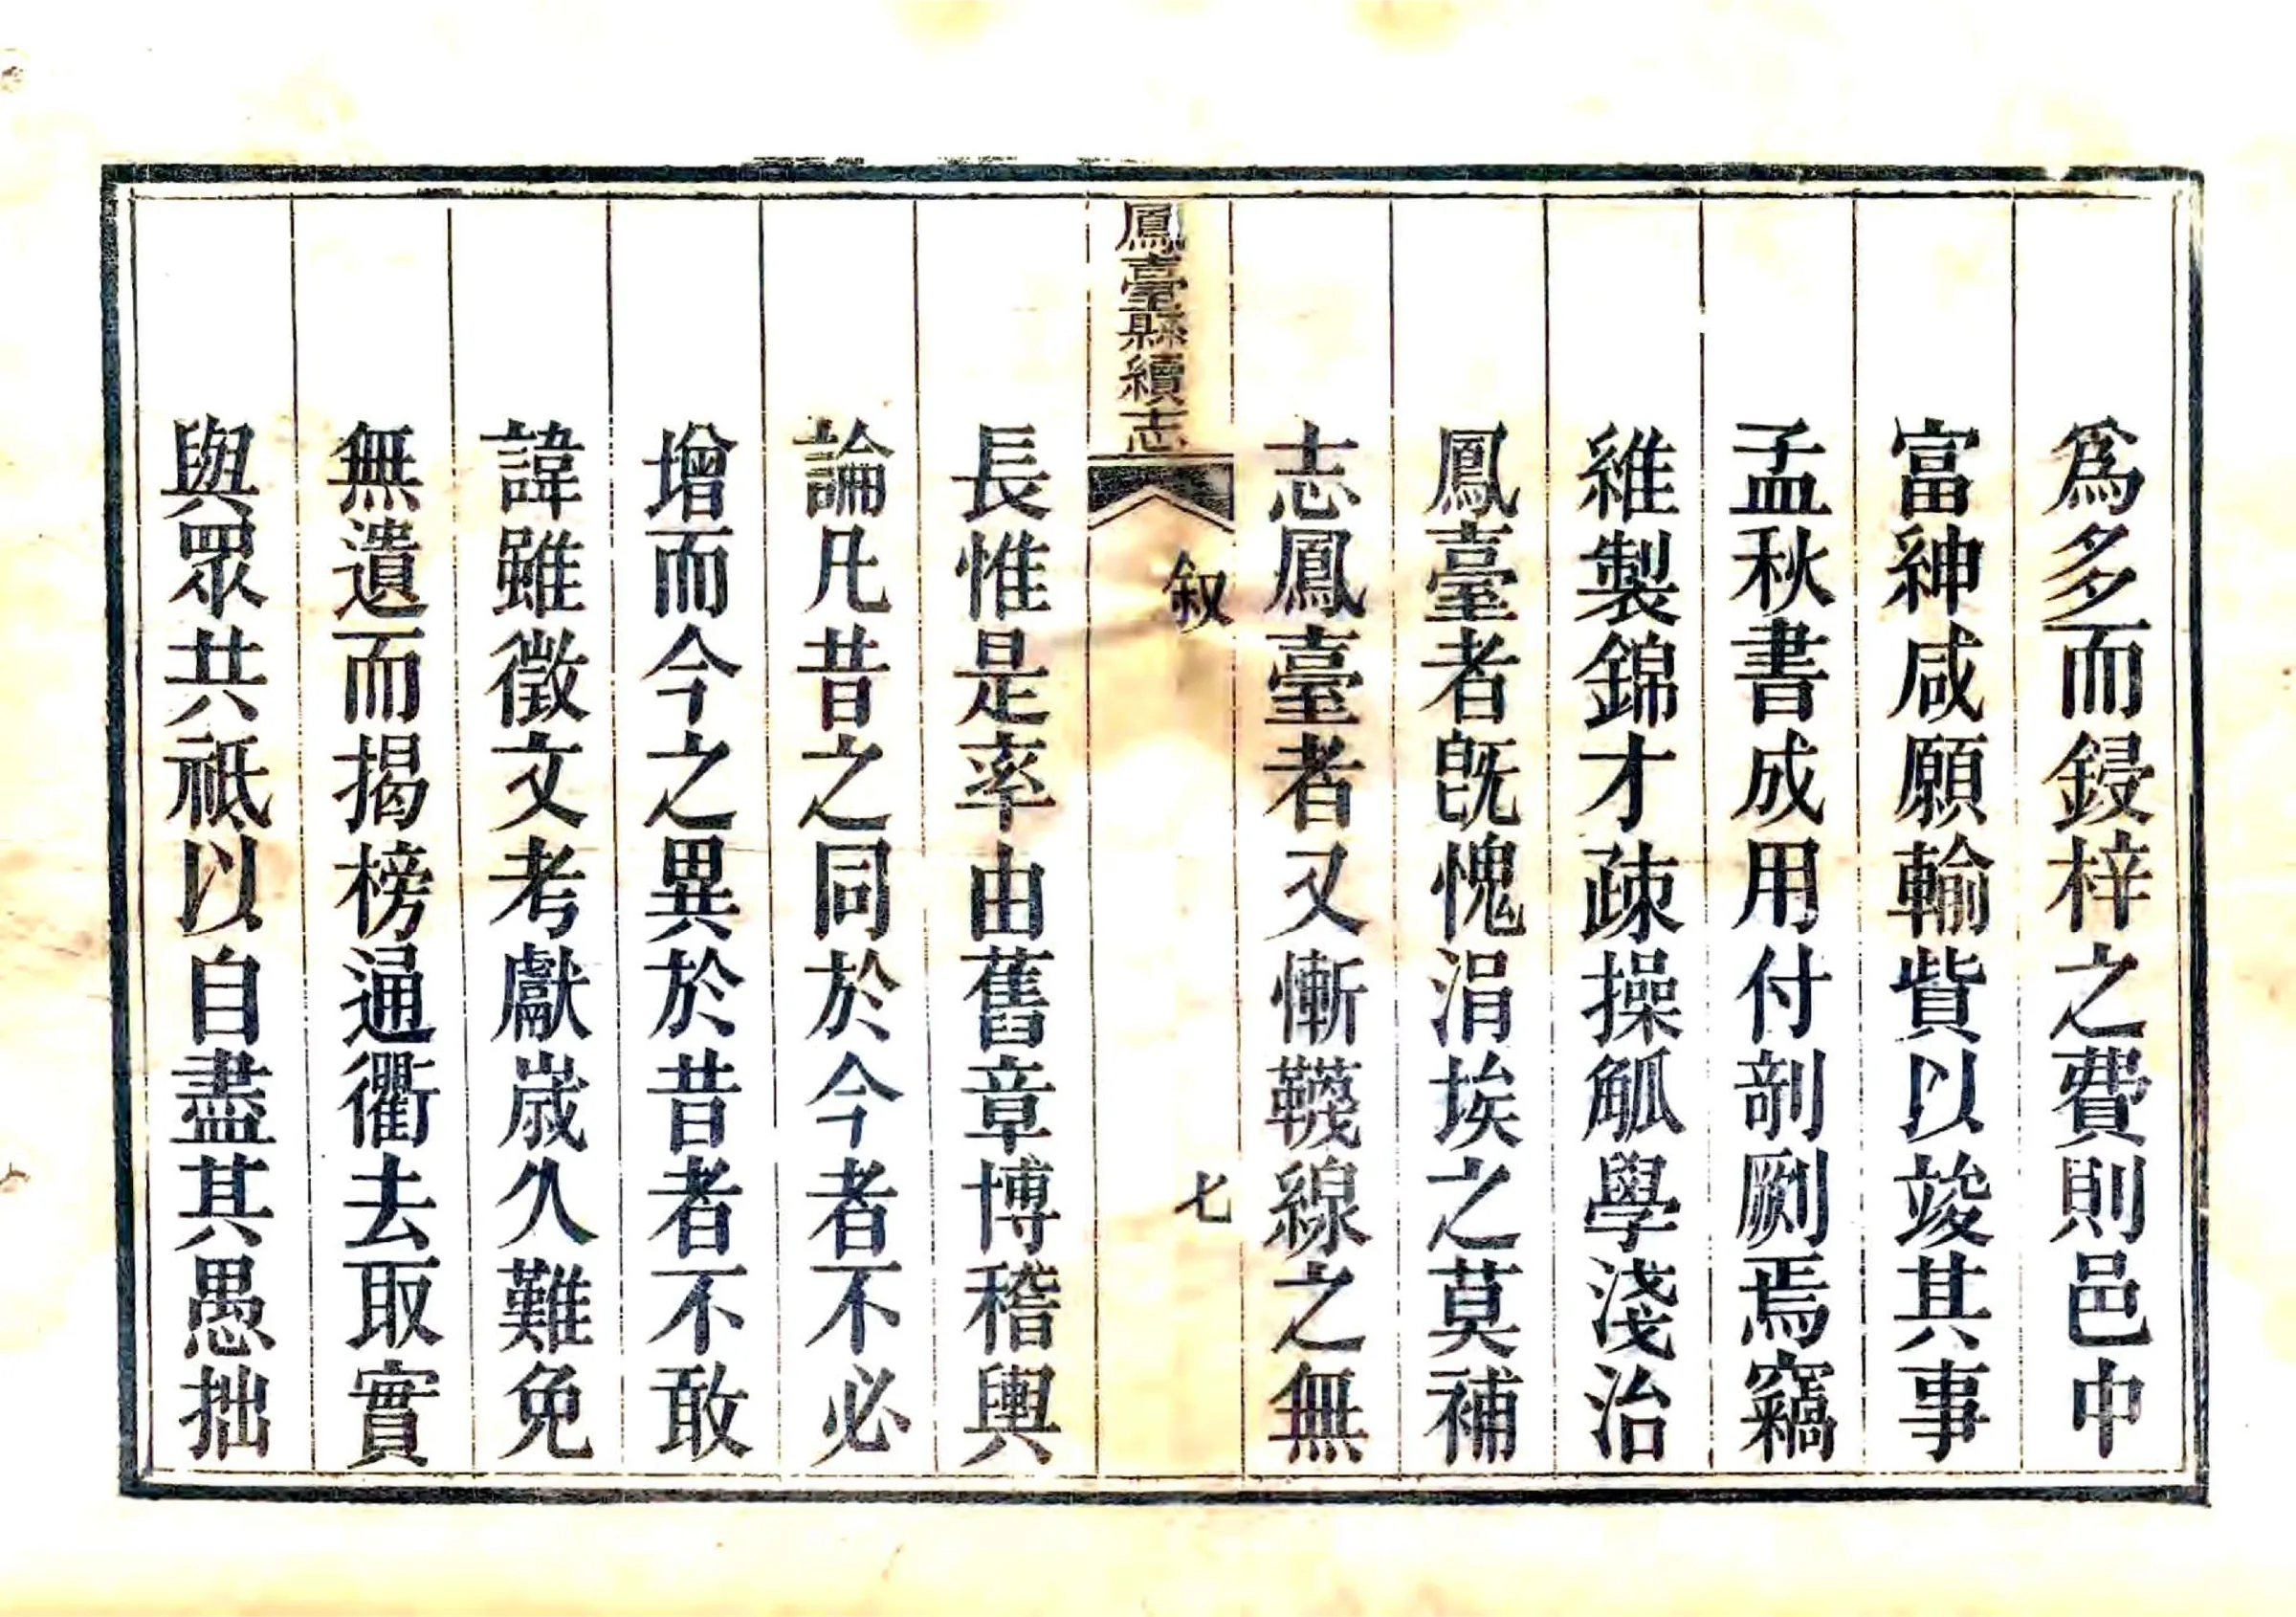 爲多而鋟梓之費則邑中
富紳咸願輸貲以竣其事
孟秋書成用付剞劂焉竊
維製錦才疎操觚學淺治
鳳臺者旣愧涓埃之莫補
志鳳臺者又慚韈線之無
鳳臺縣續志
叙
七
長惟是率由舊章博稽輿
論凡昔之同於今者不必
增而今之異於昔者不敢
諱雖徵文考獻嵗久難免
無遺而揭榜通衢去取實
與眾共祇以自盡其愚拙